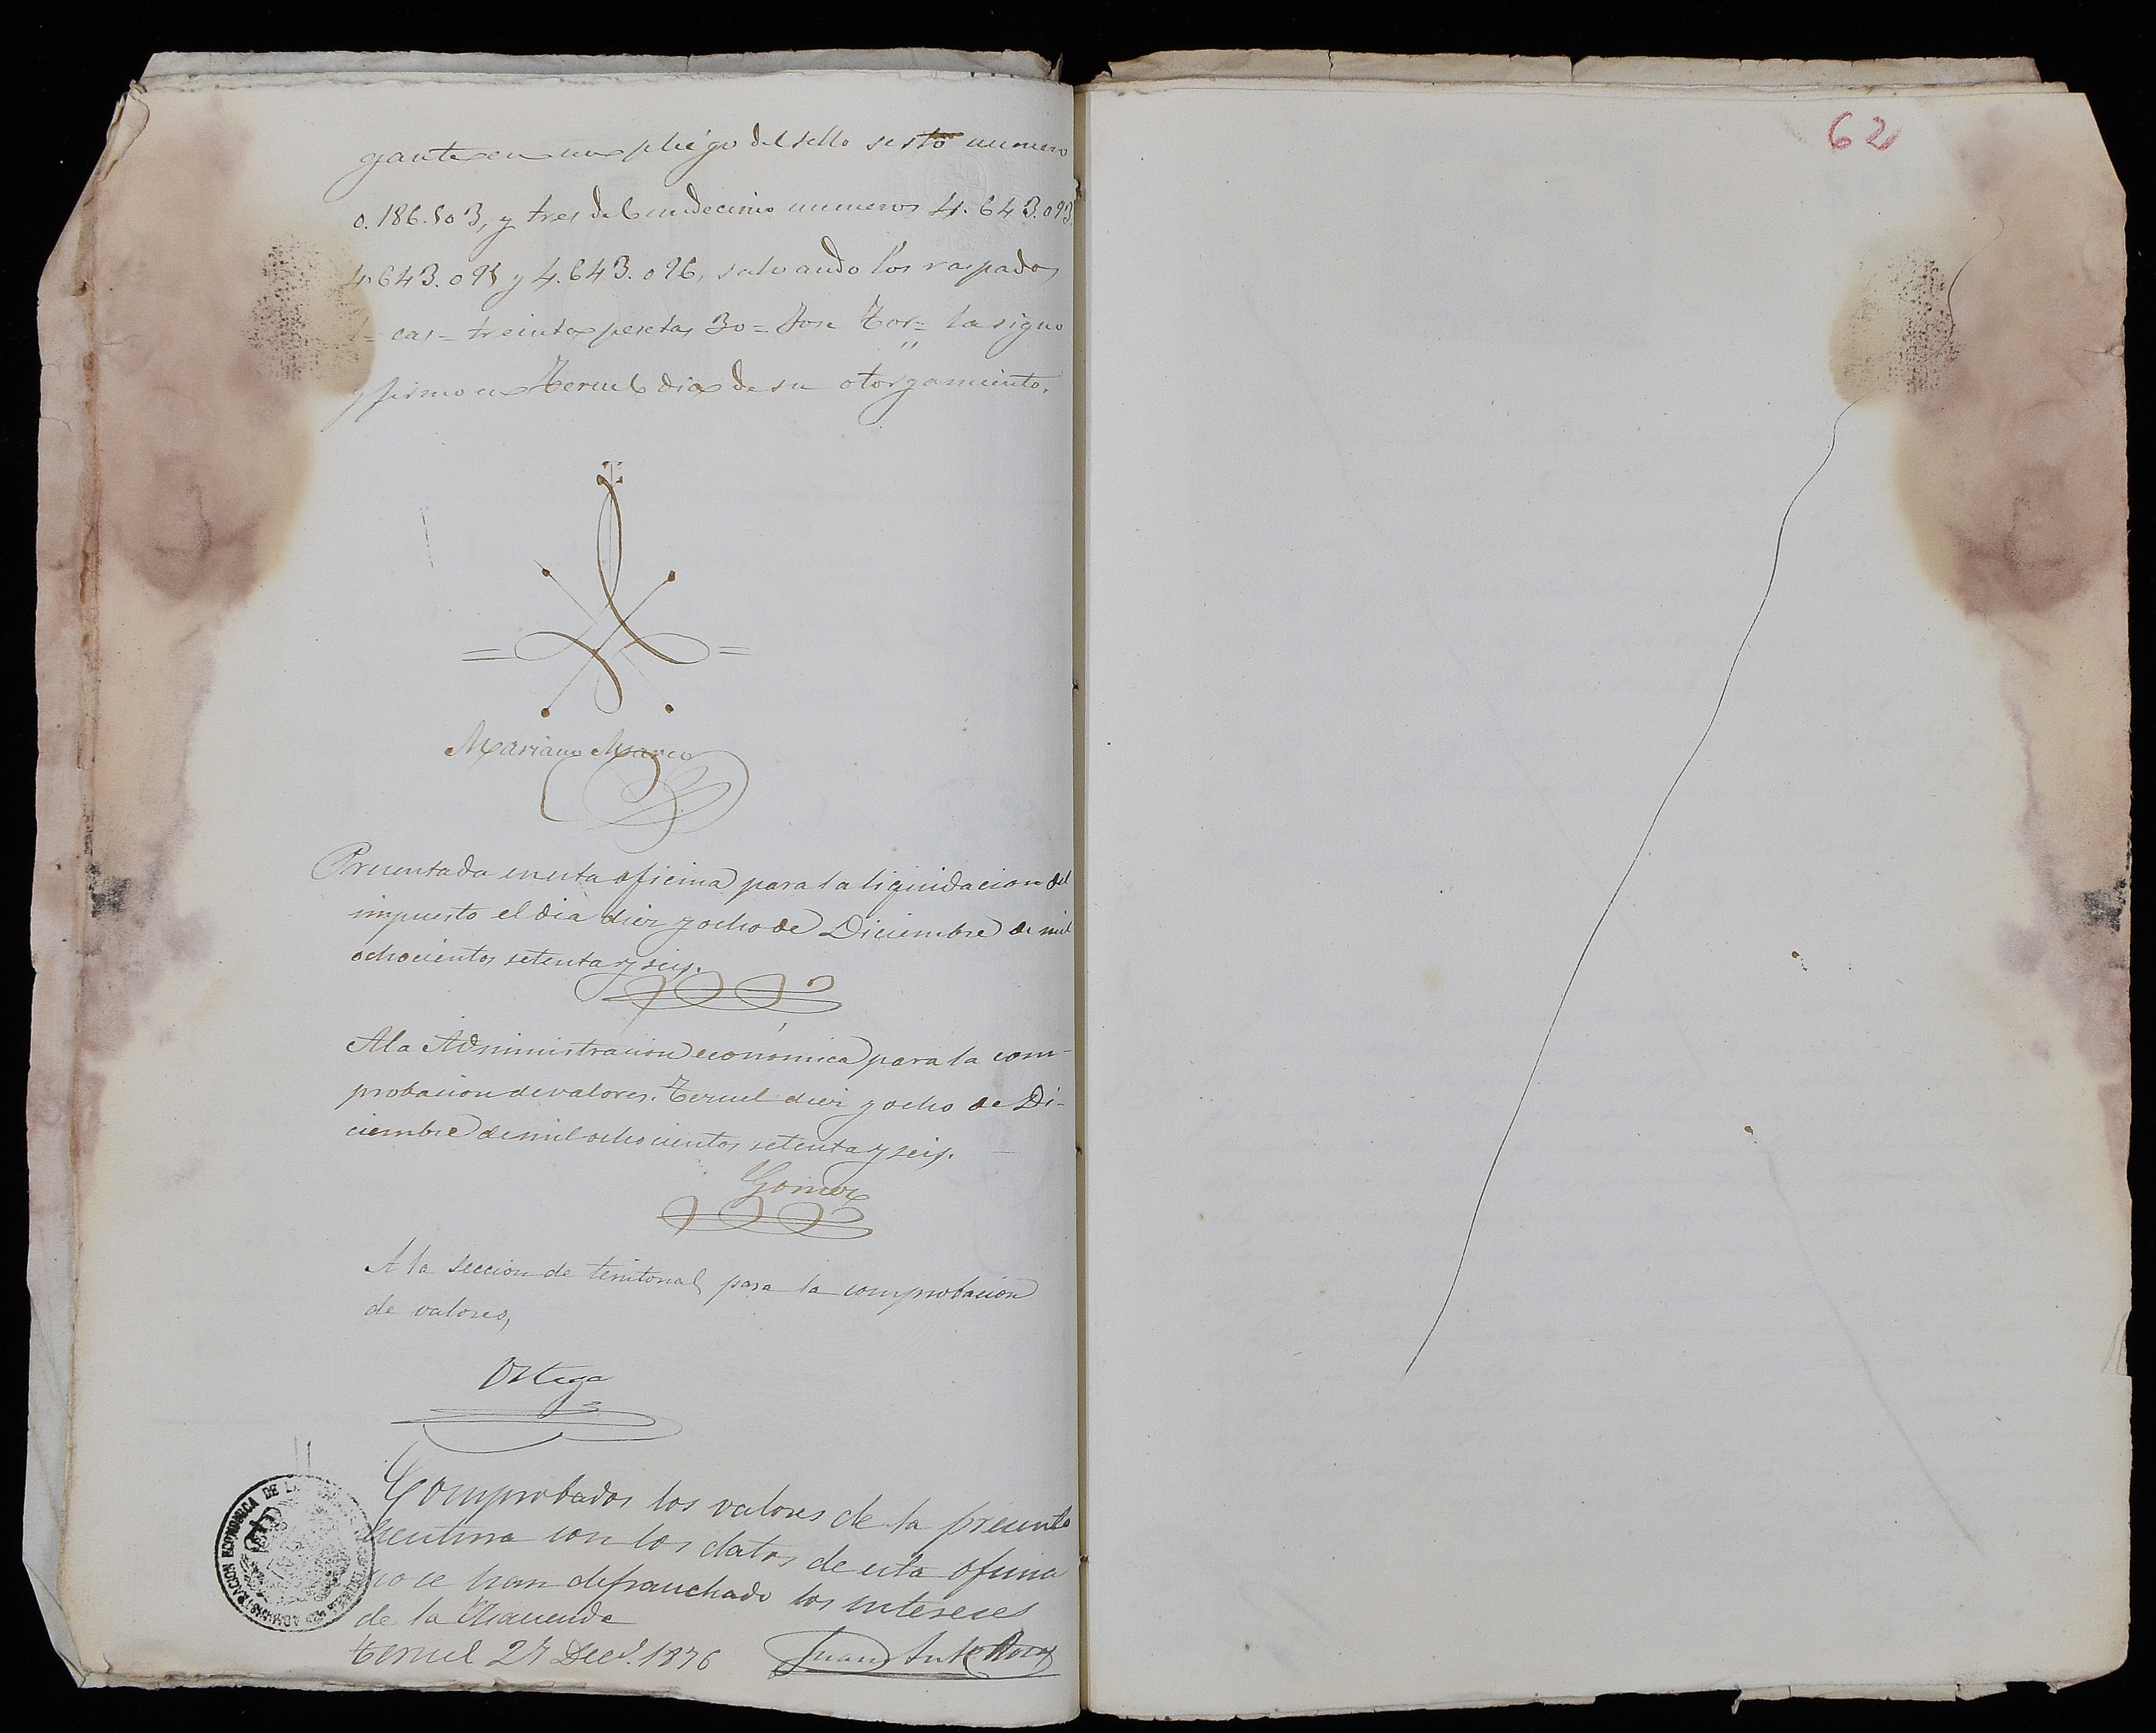 gante en un pliego del sello sesto numero
0.186.803, y tres del undecimo numeros 4.643.093,
4.643.095 y 4.643.096, salvando los raspados
cas = treinta pesetas 30 = Jose Tor = la signo
y firmo en Teruel dia de su otorgamiento.
Mariano Marco
Presentada en esta oficina para la liquidacion del
impuesto el dia diez y ocho de Diciembre de mil
ochocientos setenta y seis.
A la Administracion económica para la com-
probacion de valores. Teruel diez y ocho de Di-
ciembre de mil ochocientos setenta y seis.
Gomez
A la seccion de territorial para la comprobacion
de valores,
Ortega
Comprobados los valores de la presente
escritura con los datos de esta oficina
no se han defrauchado los intereses
de la Hacienda
Teruel 27 Dec.e 1876 Juan Ant.o
ADMINISTRACION ECONOMICA DE LA
62